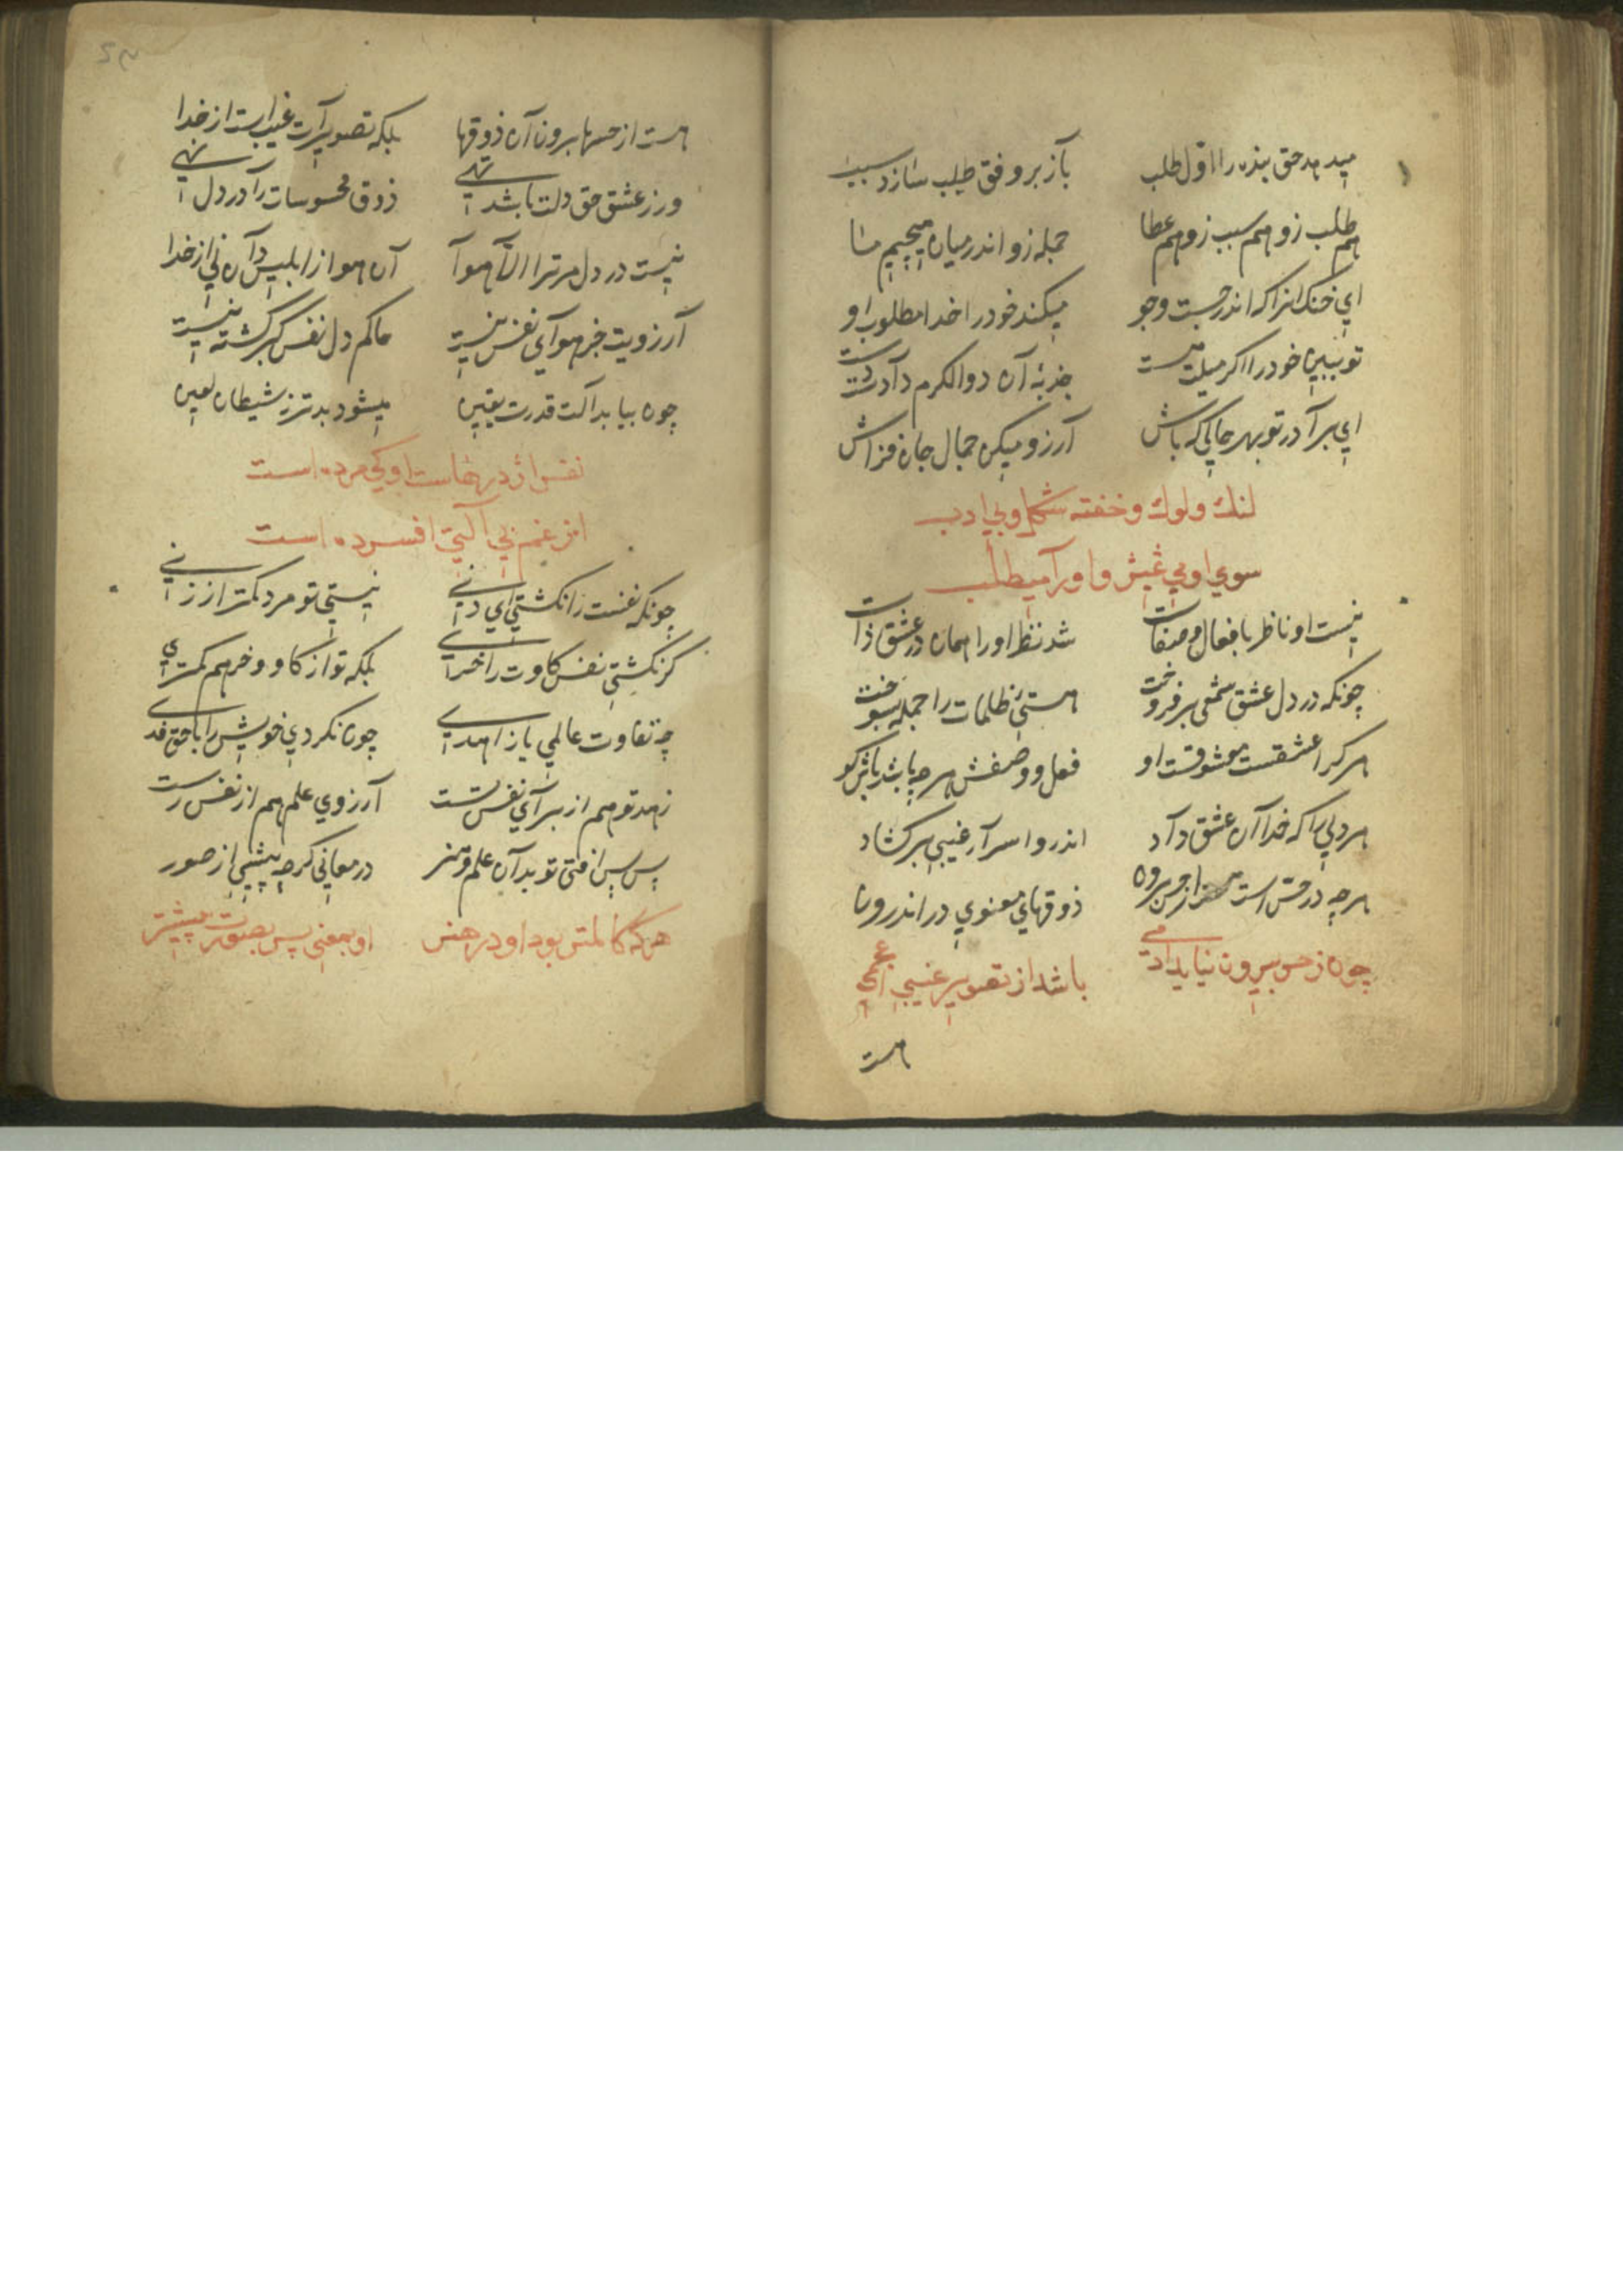 میدهد حق بنده را اول طلب باز بر وفق طلب سازد سبب
هم طلب زو هم سبب زو هم عطا جمله زو اندر میان هیچیم ما
ای خنک انرا که اندر جست و جو میکند خود را خدا مطلوب او
تو ببین خود را اکر میلت هست جذبهٔ آن ذوالکرم دادت دست
ای برادر تو بهر حالی که باش آرزو میکن جمال جان فزاش
لنك ولوك وخفته شكل وبی ادب
سوی اومی غیژ واورا میطلب
نیست او ناظر بافعال و صفات شد نظر اورا همان در عشق ذات
چونکه در دل عشق شمعی برفروخت هستیٔ ظلمات را جمله بسوخت
هر کرا عشقست معشوقست او فعل و وصفش هر چه باشد باش کو
هر دلیرا که خدا آن عشق داد اندرو اسرار غیبی برکشاد
هر چه در حس است هست از حس برون ذوقهای معنوی در اندرون
چون ز حس بیرون نیاید ادمی باشد از تصویر غیبی اعجمی
هست
هست از حسها برون آن ذوقها بلکه تصویرات غیب است از خدا
ور ز عشق حق دلت باشد تهی ذوق محسوسات را در دل نهی
نیست در دل مر ترا الا هوا آن هوا از ابلیس دان نی از خدا
آرزویت جز هوای نفس نیست حاکم دل نفس کبر کشته نیست
چون بیابد آلت قدرت یقین میشود بدتر ز شیطان لعین
نفس اژدرهاست اوکی مرده است
از غم بی آلتی افسرده است
چونکه نفست را نکشتی ای دنی نیستی تو مرد کمتر از زنی
کر نکشتی نفس کاوت را خری بلکه تو از کاو و خر هم کمتری
چه تفاوت عالمی یا زاهدی چون نکردی خویش را با حق فدی
زهد تو هم از برای نفس تست آرزوی علم هم از نفس رست
پس پس افتی تو بدان علم و هنر در معانی کرچه پیشی از صور
هرکه کاملتر بود او در هنر او بمعنی پس بصورت پیشتر